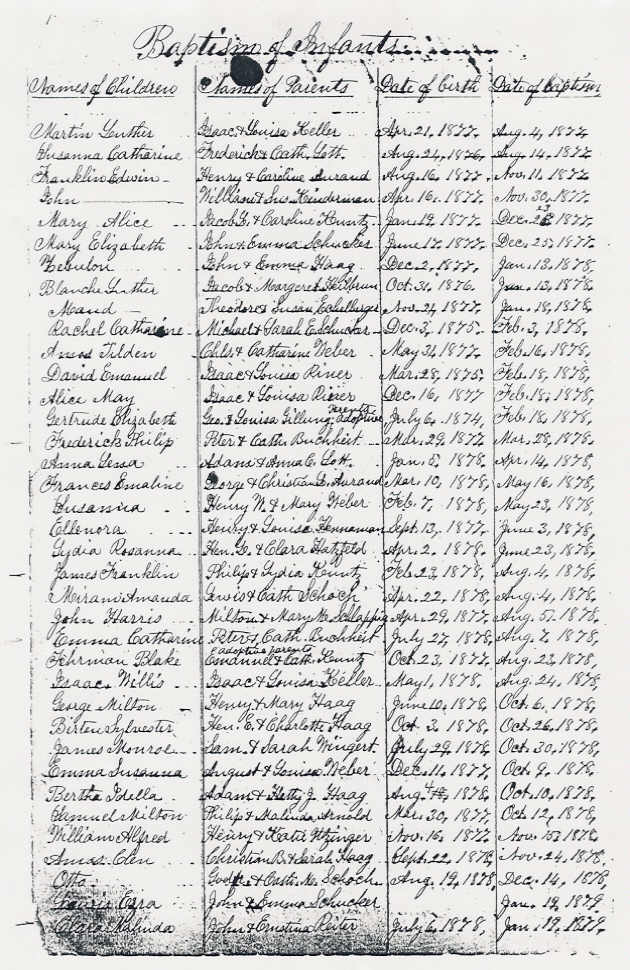 Baptism of Infants
Names of Children Names of Parents Date of birth Date of Baptism
Martin Luther Isaac & Louisa Keller Apr. 21, 1877. Aug. 4, 1877.
Susanna Catharine Frederick & Cath. Gott. Aug. 24, 1876. Aug. 14, 1877.
Franklin Edwin Henry & Caroline Aurand Aug. 16, 1877. Nov. 11, 1877.
John William & Hinderman Apr. 16, 1877. Nov. 30, 1877.
Mary Alice Jacob F. & Caroline Kuntz Jan. 19, 1877. Dec. 23 1877.
Mary Elizabeth John & Emma Schucker June 17, 1877. Dec. 25, 1877.
Zebulon John & Emma Haag Dec. 2, 1877, Jan. 13, 1878,
Blanche Luther Jacob & Margaret Heilbrun Oct. 31, 1876. Jan. 13, 1878,
Maud Theodore & Susan Echelberger Nov. 21, 1877. Jan. 18, 1878,
Rachel Catharine Michael & Sarah E. Schucker Dec. 3, 1875. Feb. 3, 1878,
Amos Tilden Chls. & Catharine Weber May 31, 1877. Feb. 16, 1878,
David Emanuel Isaac & Louisa Riner Mar. 28, 1875. Feb. 18, 1878,
Alice May Isaac & Louisa Riner Dec. 16, 1877 Feb. 18, 1878,
Gertrude Elizabeth Geo. & Louisa Gillung, adoptive Parents July 6, 1874, Feb. 18, 1878,
Frederick Philip Peter & Cath. Buchheit Mar. 29, 1877 Mar. 28, 1878,
Anna Adam & Anna C. Gott. Jan. 5, 1878, Apr. 14, 1878,
Frances Emaline George & Christia L. Aurand Mar. 10, 1878, May 16, 1878,
Susanna Henry W. & Mary Weber Feb. 7, 1878, May 23, 1878,
Ellenora Henry & Louisa Henneman Sept. 13, 1877. June 3, 1878,
Lydia Rosanna Hen. D. & Clara Hatzfeld Apr. 2, 1878, June 23, 1878,
James Franklin Philip & Lydia Kuntz Feb. 23, 1878, Aug. 4, 1878,
Miriam Amanda Lewis & Cath Schoch Apr. 22, 1878, Aug. 4, 1878,
John Harris Milton & Mary M. Schlappig Apr. 29, 1877. Aug. 5, 1878,
Emma Catharine Peter & Cath. Buchheit July 27, 1878, Aug. 7, 1878,
Fehrman Blake Emanuel & Cath. Kuntz adoptive parents Oct. 23, 1877. Aug. 23, 1878,
Isaac Willis Isaac & Louisa Keller May 1, 1878, Aug. 24, 1878,
George Milton Henry & Mary Haag June 10, 1878, Oct. 6, 1878,
Birten Sylvester Hen. E. & Charlotte Haag Oct. 3, 1878, Oct. 26, 1878,
James Monroe Sam. & Sarah Wingert July 29, 1878, Oct. 30, 1878,
Emma Susanna August & Louisa Weber Dec. 11, 1877. Oct. 9, 1878.
Bertha Idella Adam & Hetty J. Haag Aug. 4 1878, Oct. 10, 1878,
Samuel Milton Philip & Malinda Arnold Mar. 30, 1877 Oct. 12, 1878,
William Alfred Henry & Kate Utzinger Nov. 16, 1877 Nov. 15, 1878,
Amos Clen Christian B. & Sarah Haag Sept. 22, 1878, Nov. 24, 1878,
Otto & Cath. M. Schoch Aug. 19, 1878, Dec. 14, 1878,
Ezra John & Emma Schucker Jan. 19, 1879
Clara Malinda John & Ernstina Reiter July 6, 1878, Jan. 19, 1879,